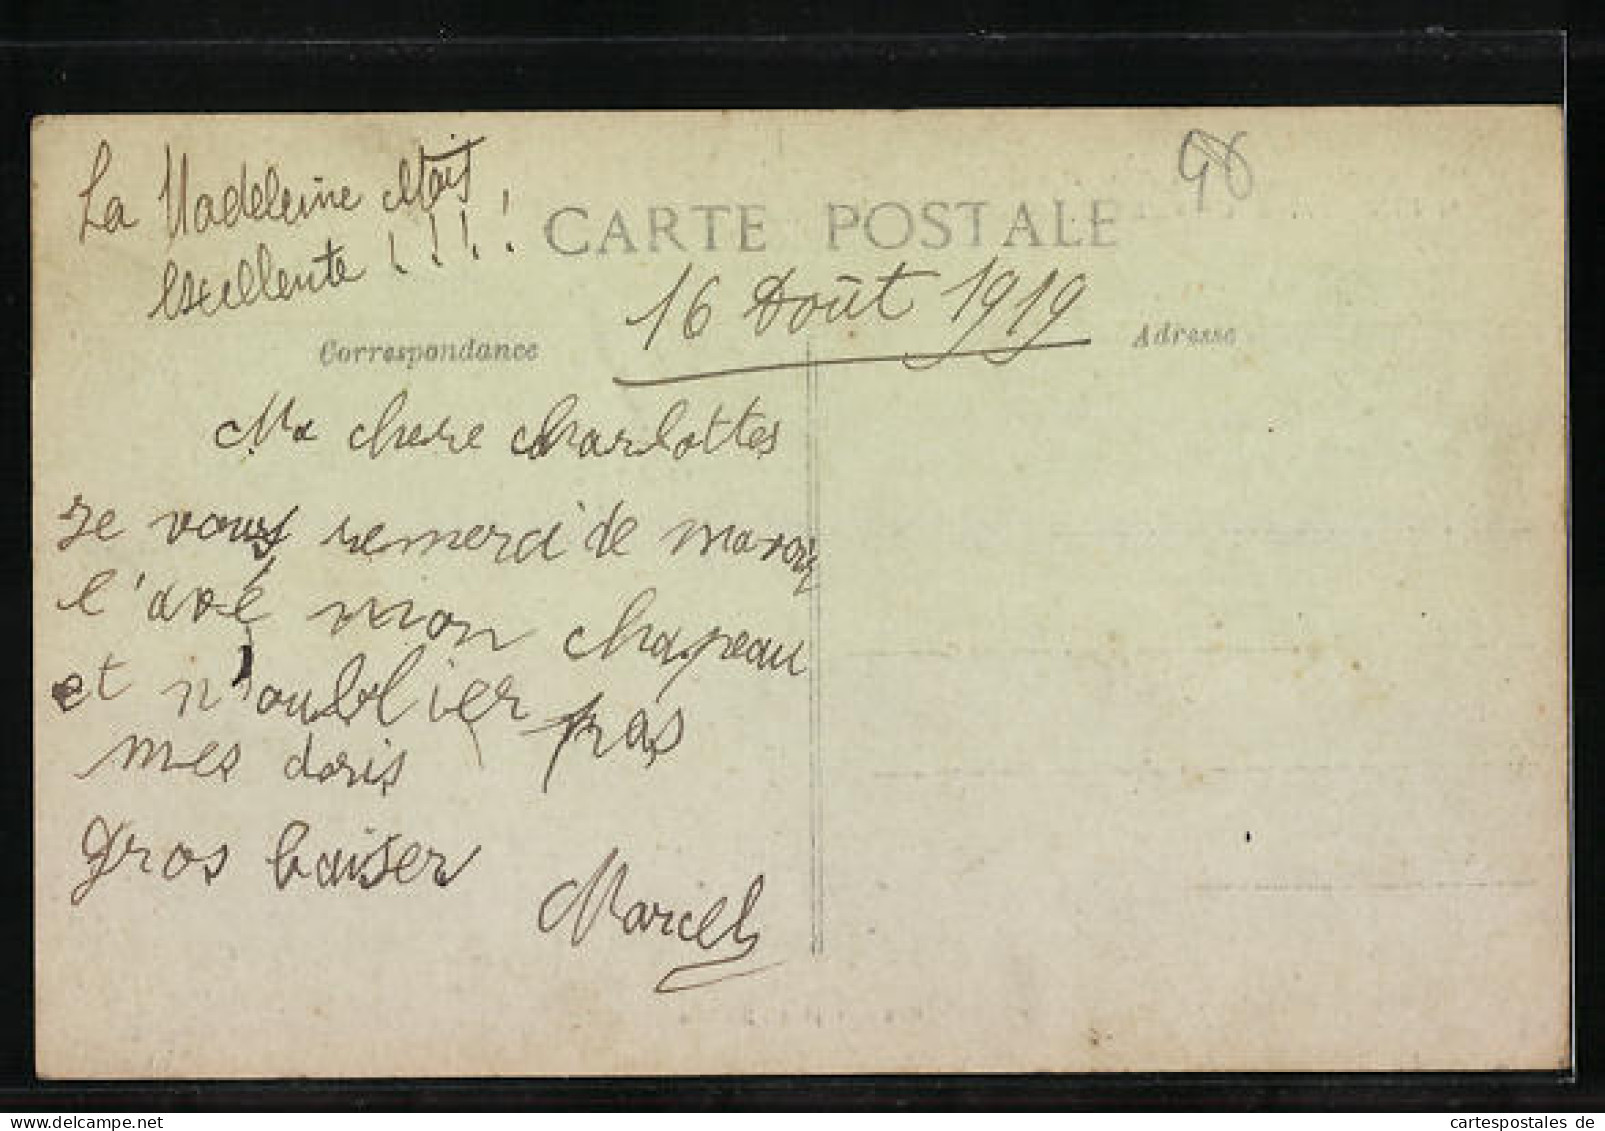 La Madeleine étais
exellente !!!!
98
CARTE POSTALE
16 Août 1919
Correspondance
Adresse
Ma chere charlottes
je vous remerci de
l'avé mon chapeau
et n'oublier pas
mes doris
gros baiser
Marcel
cartespostales de